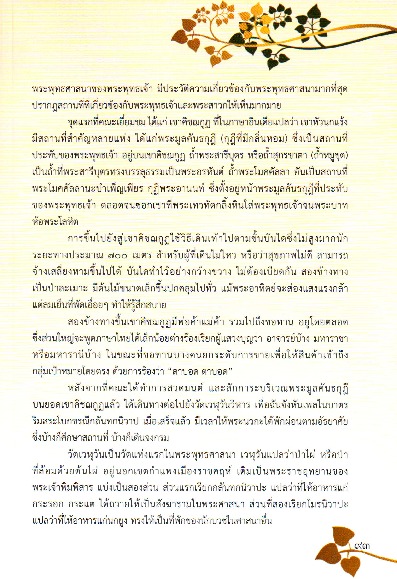 พระพุทธศาสนาของพระพุทธเจ้า มีประวัติความเกี่ยวข้องกับพระพุทธศาสนามากที่สุด
ปรากฏสถานที่ที่เกี่ยวข้องกับพระพุทธเจ้าและพระสาวกให้เห็นมากมาย
จุดแรกที่คณะเยี่ยมชม ได้แก่ เขาคิชฌกูฏ ที่ในภาษาอินเดียแปลว่า เขาหัวนกแร้ง
มีสถานที่สำคัญหลายแห่ง ได้แก่พระมูลคันธกุฎี (กุฎีที่มีกลิ่นหอม) ซึ่งเป็นสถานที่
ประทับของพระพุทธเจ้า อยู่บนเขาคิชฌกูฏ ถ้ำพระสารีบุตร หรือถ้ำสุกรขาตา (ถ้ำหมูขุด)
เป็นถ้ำที่พระสารีบุตรทรงบรรลุธรรมเป็นพระอรหันต์ ถ้ำพระโมคคัลลา อันเป็นสถานที่
พระโมคคัลลานะบำเพ็ญเพียร กุฎิพระอานนท์ ซึ่งตั้งอยู่หน้าพระมูลคันธกุฎีที่ประทับ
ของพระพุทธเจ้า ตลอดจนซอกเขาที่พระเทวทัตกลิ้งหินใส่พระพุทธเจ้าจนพระบาท
ห้อพระโลหิต
การขึ้นไปยังสู่เขาคิชฌกูฏใช้วิธีเดินเท้าไปตามชั้นบันไดซึ่งไม่สูงมากนัก
ระยะทางประมาณ ๗๐๐ เมตร สำหรับผู้ที่เดินไม่ไหว หรือว่าสุขภาพไม่ดี สามารถ
จ้างเสลี่ยงหามขึ้นไปได้ บันไดทำไว้อย่างกว้างขวาง ไม่ต้องเบียดกัน สองข้างทาง
เป็นป่าละเมาะ มีต้นไม้ขนาดเล็กขึ้นปกคลุมไปทั่ว แม้พระอาทิตย์จะส่องแสงแรงกล้า
แต่ลมเย็นที่พัดเอื่อยๆ ทำให้รู้สึกสบาย
สองข้างทางขึ้นเขาคิชฌกูฏมีพ่อค้าแม่ค้า รวมไปถึงขอทาน อยู่โดยตลอด
ซึ่งส่วนใหญ่จะพูดภาษาไทยได้เล็กน้อยต่างร้องเรียกผู้แสวงบุญว่า อาจารย์บ้าง มหาราชา
หรือมหารานีบ้าง ในขณะที่ขอทานบางคนยกระดับการขายเพื่อให้สินค้าเข้าถึง
กลุ่มเป้าหมายโดยตรง ด้วยการร้องว่า "ตาบอด ตาบอด"
หลังจากที่คณะได้ทำการสวดมนต์ และสักการะบริเวณพระมูลคันธกุฎี
บนยอดเขาคิชฌกูฏแล้ว ได้เดินทางต่อไปยังวัดเวฬุวันวิหาร เพื่อฉันจังหันเพลในภาคร
ริมสระโบกขรณีกลันทกนิวาป เมื่อเสร็จแล้ว มีเวลาให้พระนวกะได้พักผ่อนตามอัธยาศัย
ซึ่งบ้างก็ศึกษาสถานที่ บ้างก็เดินจงกรม
วัดเวฬุวันเป็นวัดแห่งแรกในพระพุทธศาสนา เวฬุวันแปลว่าป่าไผ่ หรือป่า
ที่ล้อมด้วยต้นไผ่ อยู่นอกเขตกำแพงเมืองราชคฤห์ เดิมเป็นพระราชอุทยานของ
พระเจ้าพิมพิสาร แบ่งเป็นสองส่วน ส่วนแรกเรียกกลันทกนิวาปะ แปลว่าที่ให้อาหารแก่
กระรอก กระแต ได้ถวายให้เป็นสังฆารามในพระศาสนา ส่วนที่สองเรียกโมรนิวาปะ
แปลว่าที่ให้อาหารแก่นกยูง ทรงให้เป็นที่พักของนักบวชในศาสนาอื่น